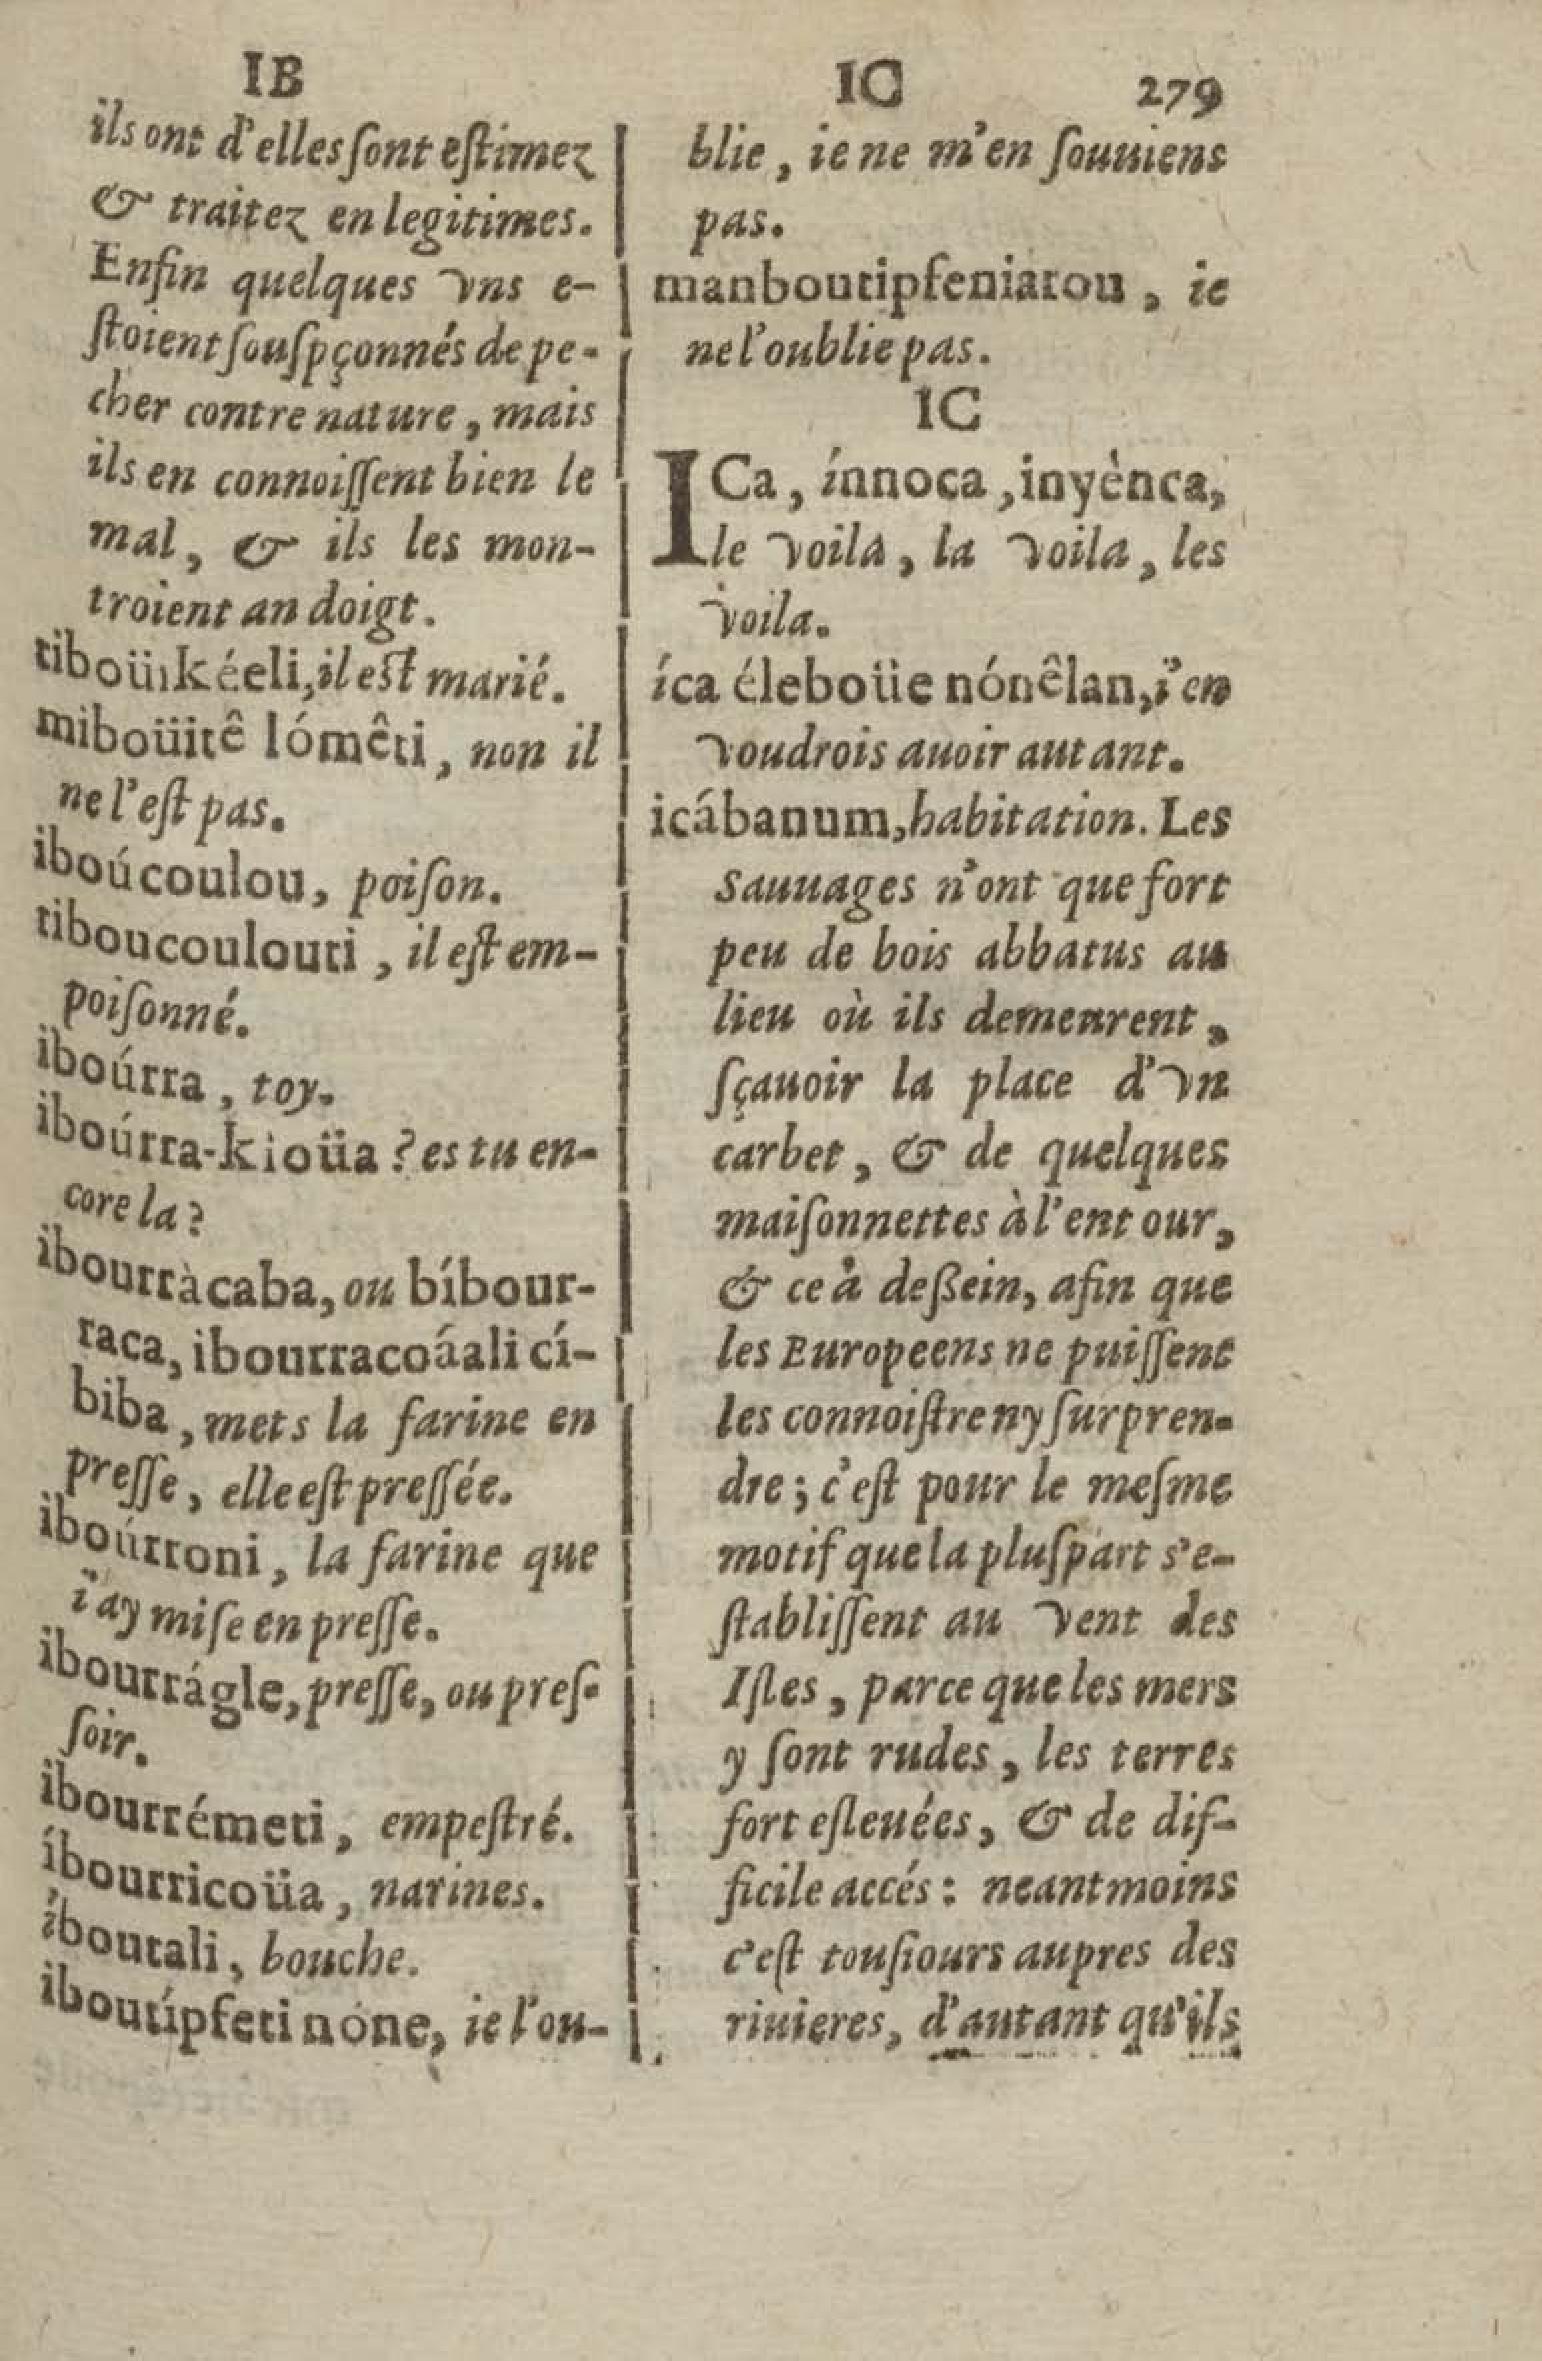 IB
ils ont d'elles ſont eſtimez
& traitez en legitimes.
Enfin quelques vns e-
ſtoient ſouſpçonnés de pe-
cher contre nature, mais
ils en connoiſſent bien le
mal, & ils les mon-
troient an doigt.
tiboüikéeli, il est marié.
miboüitê lómêti, non il
ne l'eſt pas.
iboúcoulou, poiſon.
tiboucoulouti, il eſt em-
poiſonné.
iboúrra, toy.
iboúrra-kioüa? es tu en-
core la?
ibourràcaba, ou bíbour-
raca, ibourracoáali cí-
biba, mets la farine en
preſſe, elle eſt preſſée.
iboúrroni, la farine que
i'ay miſe en preſſe.
ibourrágle, preſſe, ou preſ-
ſoir.
ibourrémeti, empeſtré.
íbourricoüa, narines.
íboutali, bouche.
iboutípfeti nóne, ie l'ou-
IC 279
blie, ie ne m'en ſouuiens
pas.
manboutipfeniatou, ie
ne l'oublie pas.
IC
ICa, ínnoca, inyènca,
le voila, la voila, les
voila.
íca éleboüe nónêlan, i'en
voudrois auoir autant.
icábanum, habitation. Les
Sauuages n'ont que fort
peu de bois abbatus au
lieu où ils demeurent,
ſçauoir la place d'vn
carbet, & de quelques
maiſonnettes à l'entour,
& ce à deßein, afin que
les Europeens ne puiſſent
les connoiſtre ny ſurpren-
dre; c'eſt pour le meſme
motif que la pluſpart s'e-
ſtabliſſent au vent des
Iſles, parce que les mers
y ſont rudes, les terres
fort eſleuées, & de dif-
ficile accés: neantmoins
c'eſt touſiours aupres des
riuieres, d'autant qu'ils